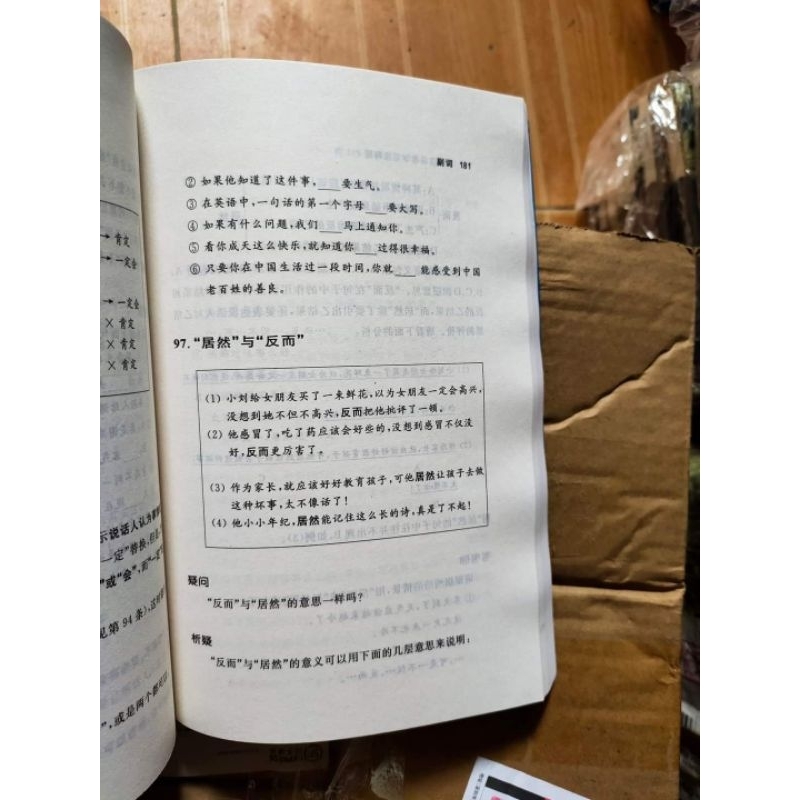 → 肯定
→ 一定会
→ 一定会
× 肯定
× 肯定
× 肯定
示说话人认为事
一定”替换,但是
”或“会”,而“一定”
见第 94 条),这时
”,或是两个都可以
副词 181
② 如果他知道了这件事,___要生气。
③ 在英语中,一句话的第一个字母___要大写。
④ 如果有什么问题,我们___马上通知你。
⑤ 看你成天这么快乐,就知道你___过得很幸福。
⑥ 只要你在中国生活过一段时间,你就___能感受到中国
老百姓的善良。
97. “居然”与“反而”
(1) 小刘给女朋友买了一束鲜花,以为女朋友一定会高兴,
没想到她不但不高兴,反而把他批评了一顿。
(2) 他感冒了,吃了药应该会好些的,没想到感冒不仅没
好,反而更厉害了。
(3) 作为家长,就应该好好教育孩子,可他居然让孩子去做
这种坏事,太不像话了!
(4) 他小小年纪,居然能记住这么长的诗,真是了不起!
疑问
“反而”与“居然”的意思一样吗?
析疑
“反而”与“居然”的意义可以用下面的几层意思来说明: